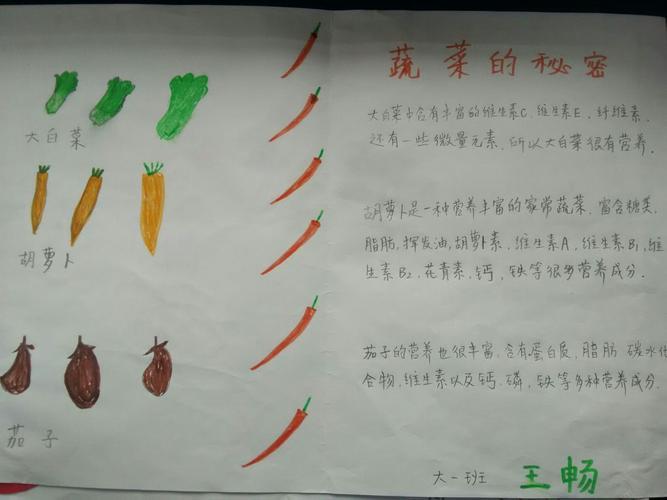 大白菜
胡萝卜
茄子
蔬菜的秘密
大白菜中含有丰富的维生素C、维生素E、纤维素,
还有一些微量元素,所以大白菜很有营养。
胡萝卜是一种营养丰富的家常蔬菜,富含糖类,
脂肪,挥发油,胡萝卜素,维生素A,维生素B1,维
生素B2,花青素,钙,铁等很多营养成分.
茄子的营养也很丰富,含有蛋白质,脂肪 碳水化
合物,维生素以及钙、磷,铁等多种营养成分.
大一班 王畅